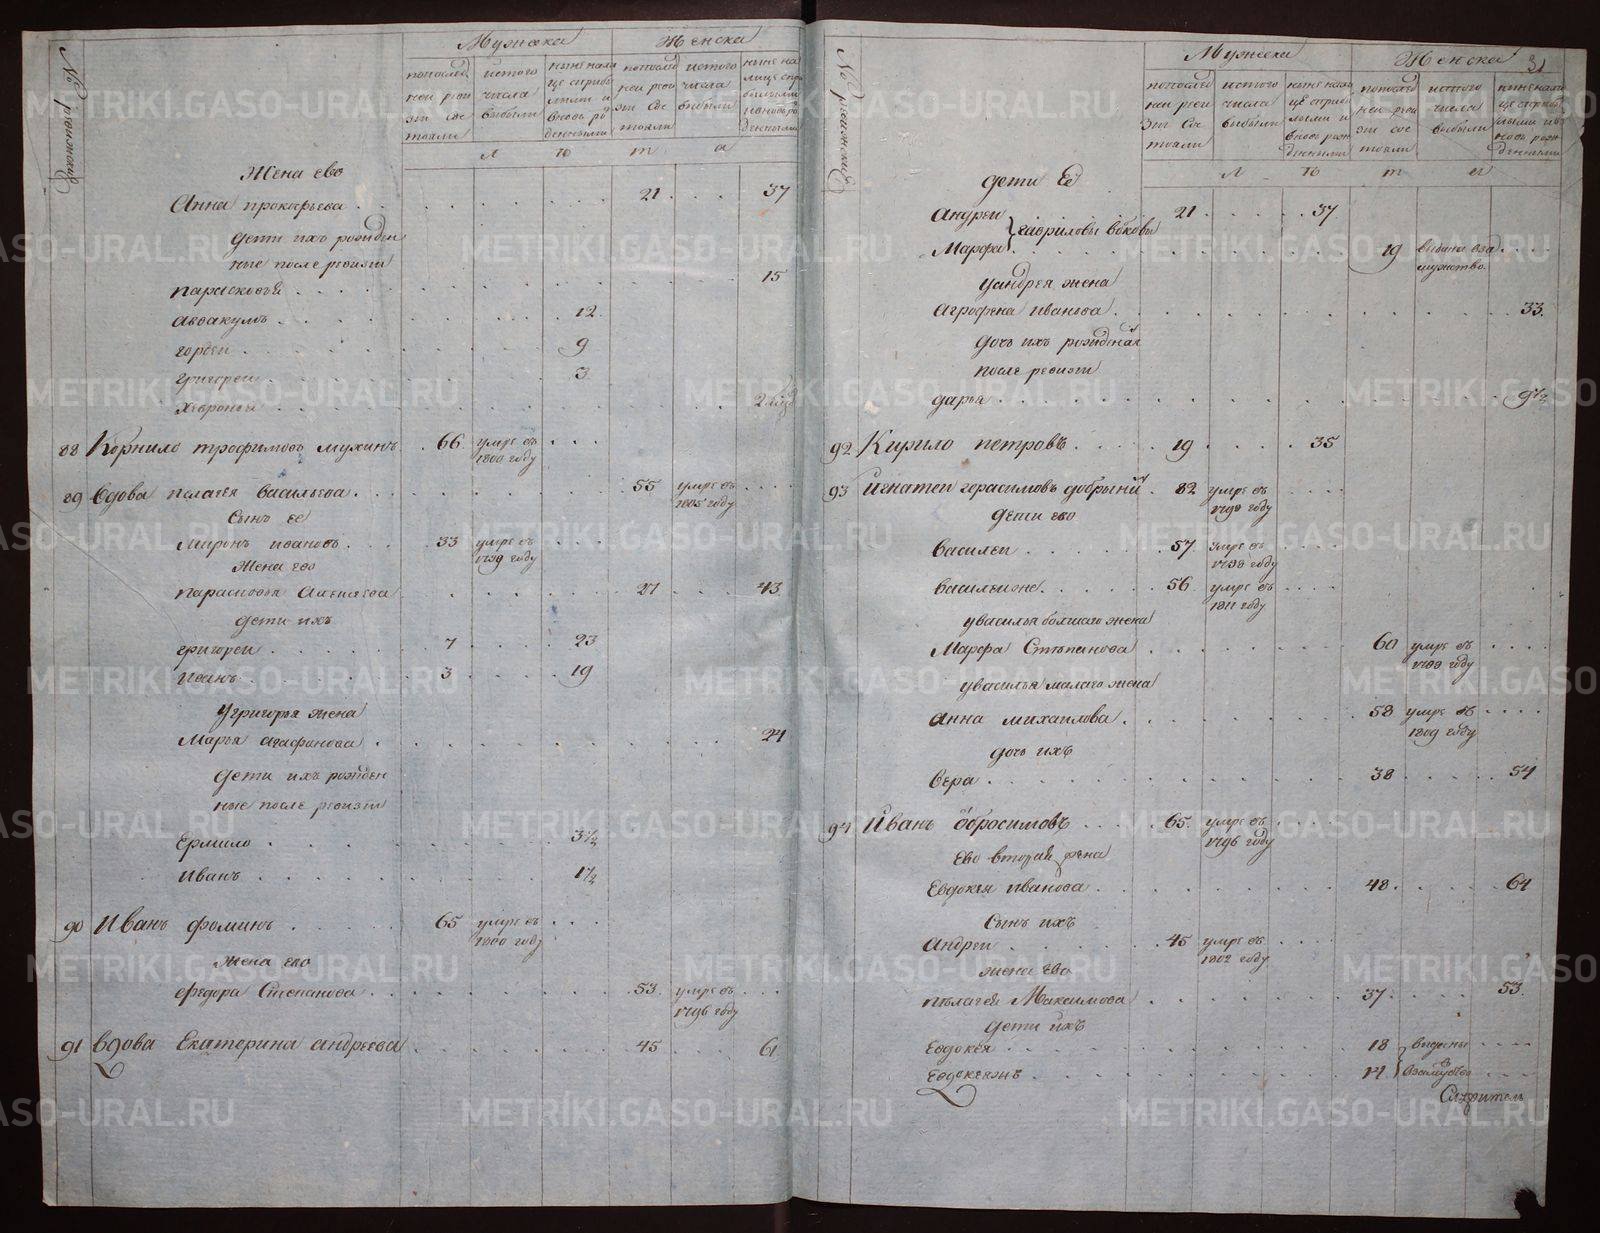 Мужска
Женска
№ ревижския
последней ревизии состояли
ис того числа выбыли
ныне налице с прибылыми и вновь рожденными
последней ревизии состояли
ис того числа выбыли
ныне налице с прибылыми и вновь рожденными
Л ѣ т а
Жена ево
Анна прокофьева 21 37
дети ихъ рожден
ные после ревизïи
парасковья 15
аввакумъ 12
гордеи 9
григореи 3
хеврония
88 Корнило трофимовъ мухинъ 66 умре въ 1800 году
89 вдова пелагея васильева 55 умре въ 1805 году
сынъ ее
Миронъ ивановъ 33 умре въ 1799 году
Жена ево
парасковья 27 43
дети ихъ
григореи 7 23
иванъ 3 19
у григорья жена
Марья агафонова 24
дети ихъ рожден
ные после ревизïи
Ермило 3½
иванъ 1½
90 Иванъ фоминъ 65 умре въ 1800 году
жена ево
федора Степанова 53 умре въ 1796 году
91 вдова Екатерина андреева 45 61
31
Мужска
Женска
№ ревижския
последней ревизии состояли
ис того числа выбыли
ныне налице с прибылыми и вновь рожденными
последней ревизии состояли
ис того числа выбыли
ныне налице с прибылыми и вновь рожденными
Л ѣ т а
дети Её
андреи 21 37
гавриловы
Марфа 19 выдана в замужство
у андрея жена
аграфена иванова 33
дочь ихъ рожденая
после ревизïи
дарья 9½
92 Кирило петровъ 19 35
93 игнатеи герасимовъ добрынинъ 82 умре въ 1798 году
дети ево
василеи 57 умре въ 1799 году
василеиже 56 умре въ 1811 году
у василья болшаго жена
Марфа Стѣпанова 60 умре въ 1799 году
у василья малаго жена
анна михаилова 58 умре въ 1809 году
дочь ихъ
вера 38 54
94 Иванъ обросимовъ 65 умре въ 1796 году
Ево вторая жена
Евдокея иванова 48 64
Сынъ ихъ
андреи 45 умре въ 1802 году
жена ево
пелагея Максимова 37 53
дети ихъ
Евдокея 18 выданы
Евдокеяжъ 14 в замужство
METRIKI.GASO-URAL.RU